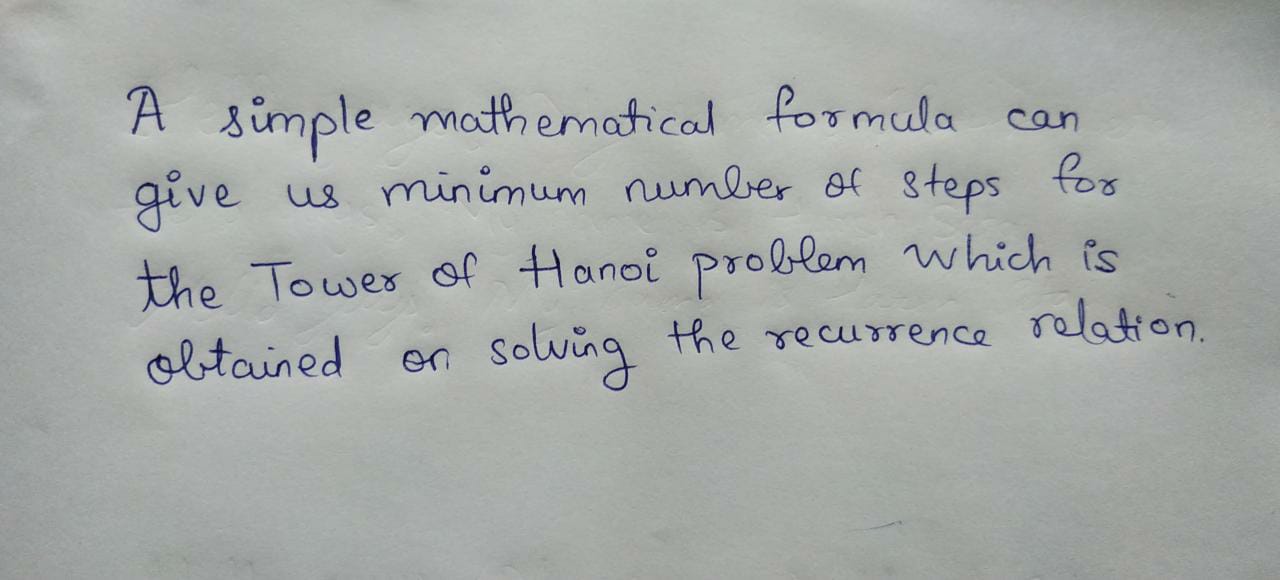 A simple mathematical formula can
give us minimum number of steps for
the Tower of Hanoi problem which is
obtained on solving the recurrence relation.